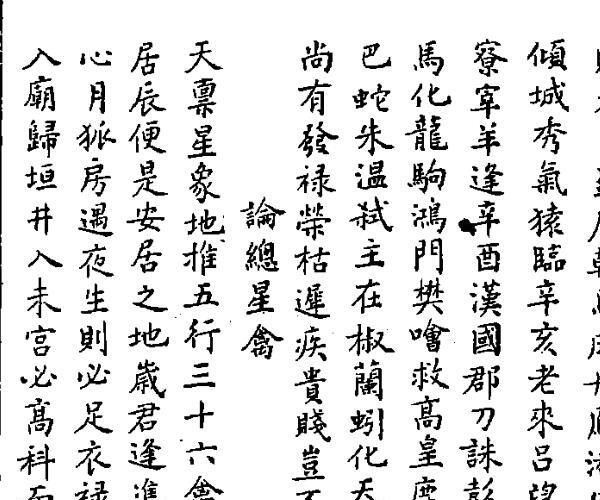 傾城秀氣猿臨辛亥老來呂望
寮宰羊逢辛酉漢國郡刀誅彭
馬化龍駒鴻門樊噲救高皇
巴蛇朱溫弒主在椒蘭蚓化天
尚有發祿榮枯遲疾貴賤豈
論總星禽
天稟星象地推五行三十六禽
居辰便是安居之地歲君逢
心月狐房遇夜生則必足衣祿
入廟歸垣井入未宮必高科